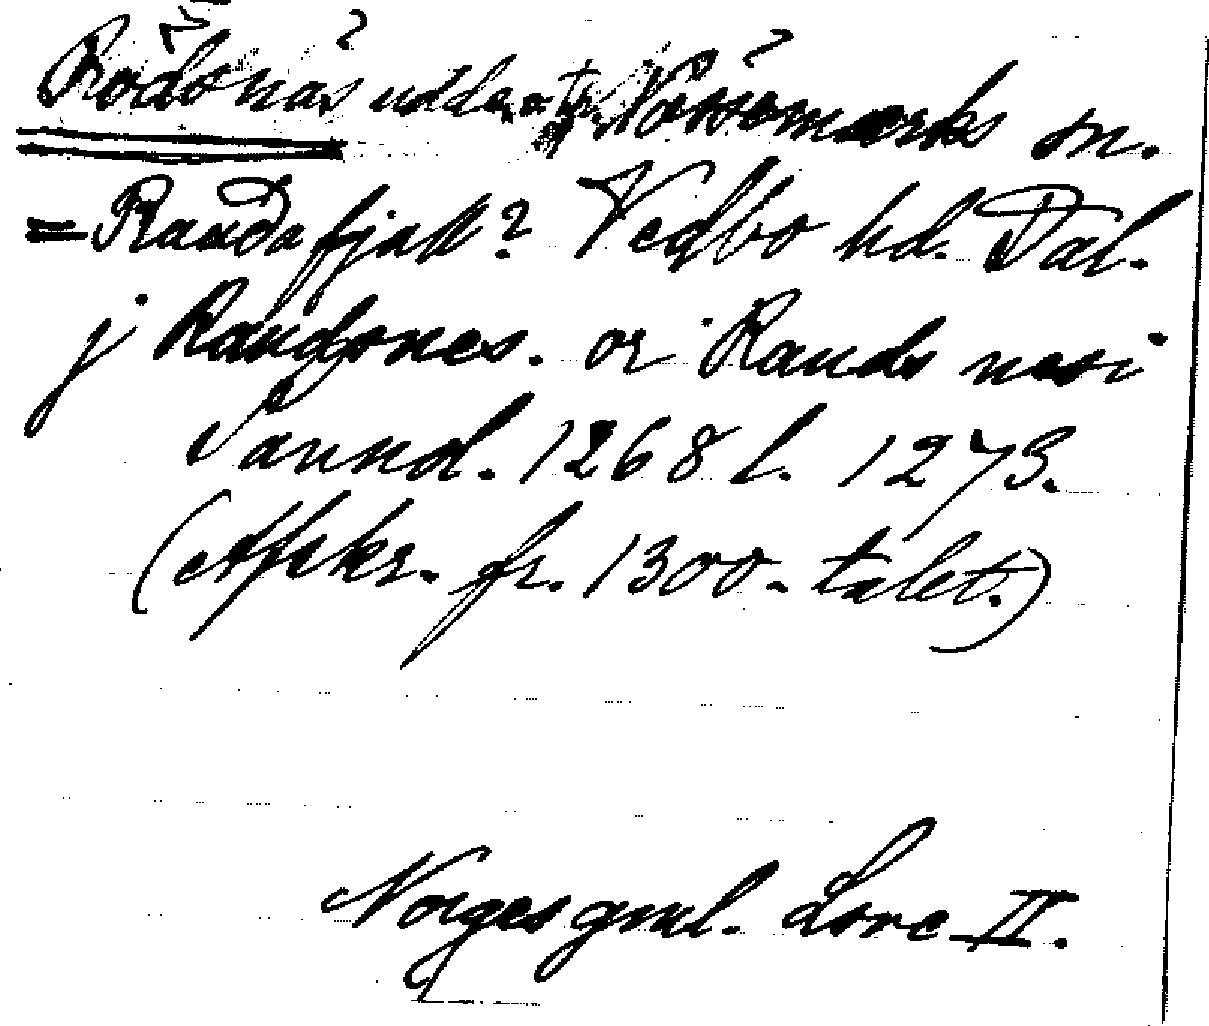 ? ?
Rödönäs udde, Nössemarks sn.
= Raudafjall? Vedbo hd. Dal.
j Raudones. or Rauds nesi
Sannd. 1268 l. 1273.
(Afskr. fr. 1300-talet.)
Norges gml. Love II.